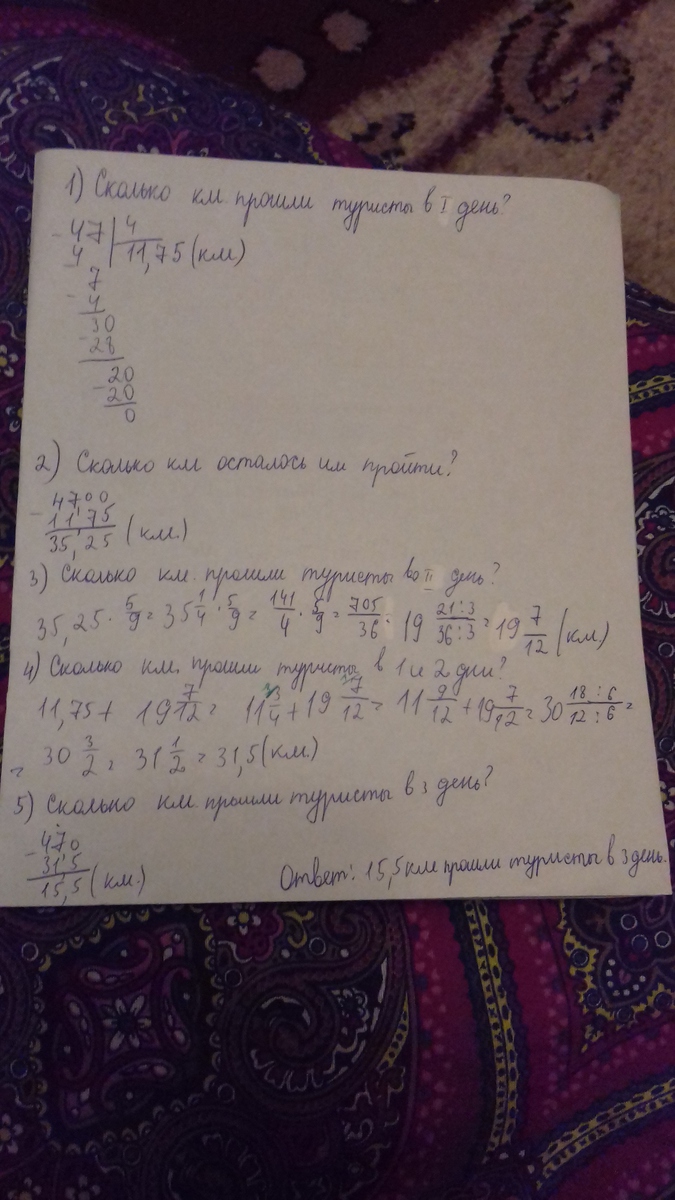 1) Сколько км. прошли туристы в I день?
- 47 | 4
4 | 11,75 (км)
7
- 4
30
- 28
20
- 20
0
2) Сколько км осталось им пройти?
- 4700
11,75
35,25 (км.)
3) Сколько км. прошли туристы во II день?
35,25 · 5/9 = 35 1/4 · 5/9 = 141/4 · 5/9 = 705/36 = 19 21:3/36:3 = 19 7/12 (км)
4) Сколько км. прошли туристы в 1 и 2 дни?
11,75 + 19 7/12 = 11 3/4 + 19 7/12 = 11 9/12 + 19 7/12 = 30 18:6/12:6 =
= 30 3/2 = 31 1/2 = 31,5 (км.)
5) Сколько км. прошли туристы в 3 день?
- 470
31,5
15,5 (км.)
Ответ: 15,5 км прошли туристы в 3 день.